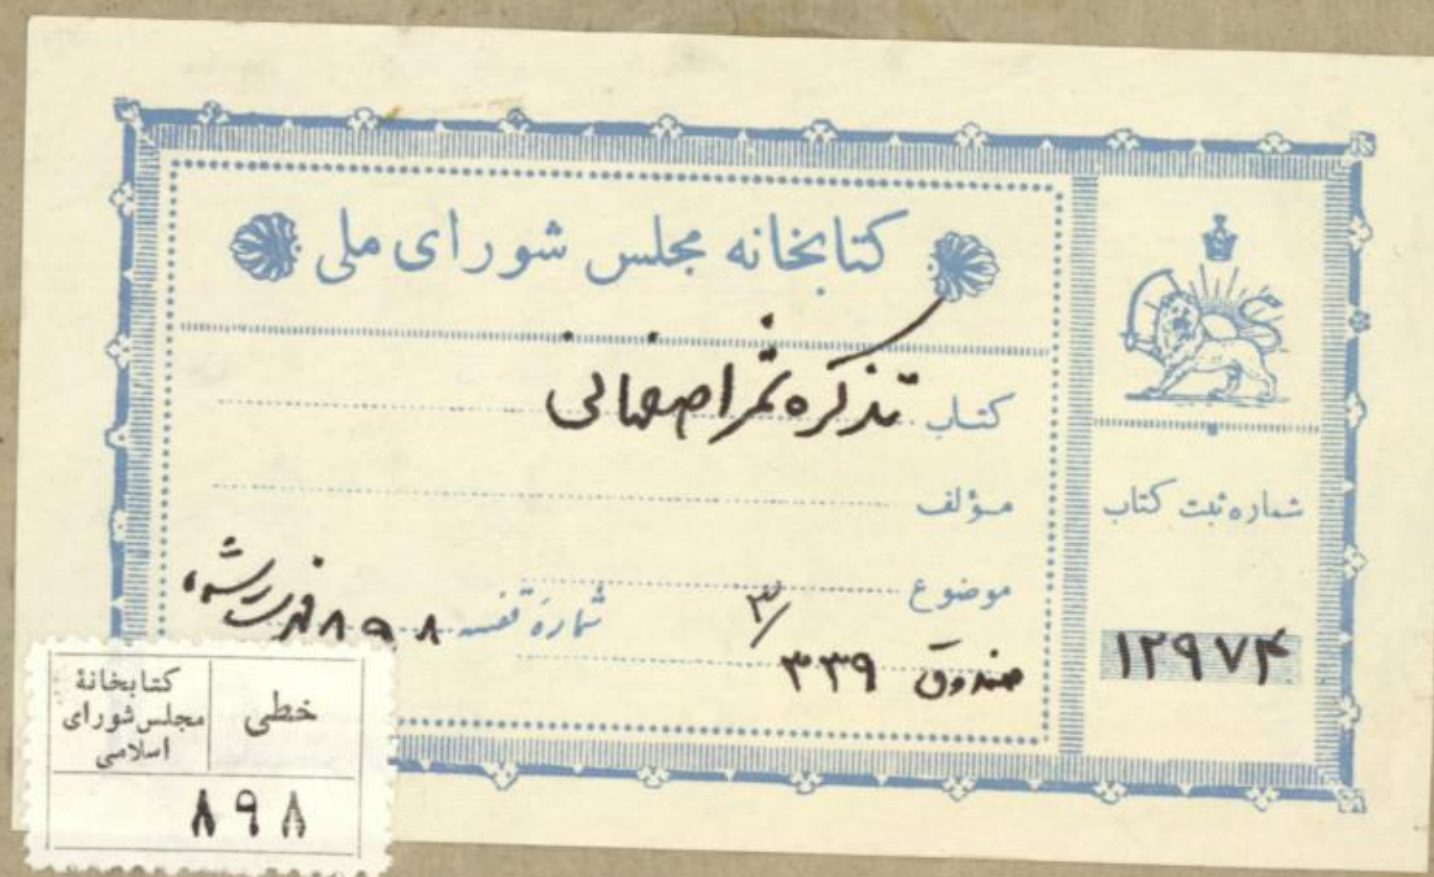 کتابخانه مجلس شورای ملی
کتاب تذکره ثمر اصفهانی
مؤلف
موضوع
شمارهٔ قفسه ۸۹۸ فهرست شده
صندوق ۳۳۹/۳
شماره ثبت کتاب
۱۲۹۷۴
خطی
کتابخانهٔ
مجلس شورای
اسلامی
۸۹۸